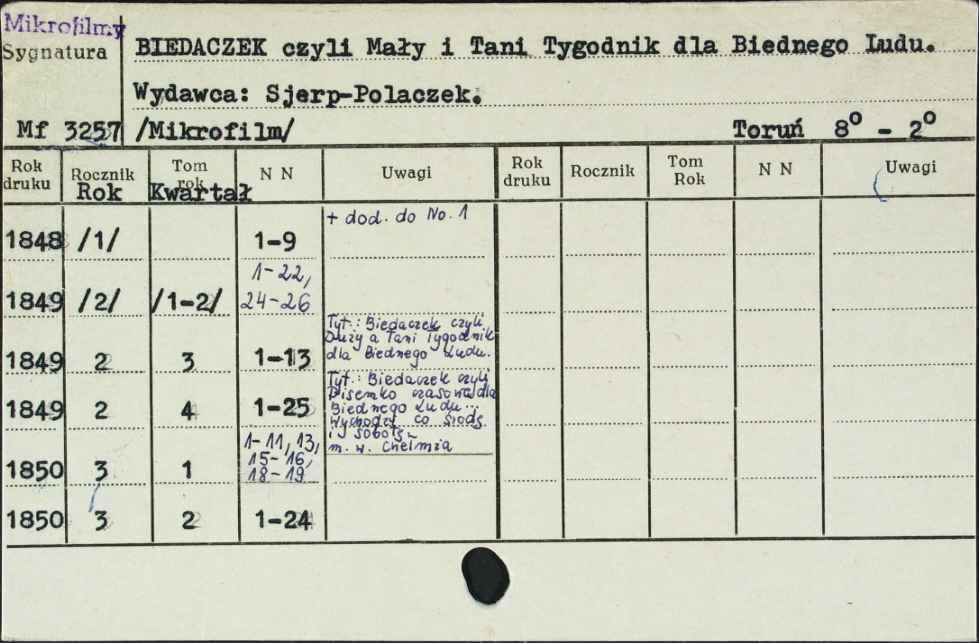 Mikrofilmy
Sygnatura
BIEDACZEK czyli Mały i Tani Tygodnik dla Biednego Ludu.
Wydawca: Sjerp-Polaczek.
Mf 3257 /Mikrofilm/ Toruń 8° - 2°
Rok druku Rocznik Tom rok N N Uwagi Rok druku Rocznik Tom Rok N N Uwagi
Rok Kwartał
1848 /1/ 1-9 + dod. do No. 1
1849 /2/ /1-2/ 1-22, 24-26
1849 2 3 1-13 Tyt.: Biedaczek czyli
Duży a Tani Tygodnik
dla Biednego Ludu.
1849 2 4 1-25 Tyt.: Biedaczek czyli
Pisemko czasowe dla
Biednego Ludu...
Wychodzi co środę
i sobotę
m. w. Chełmża
1850 3 1 1-11, 13,
15-16,
18-19
1850 3 2 1-24